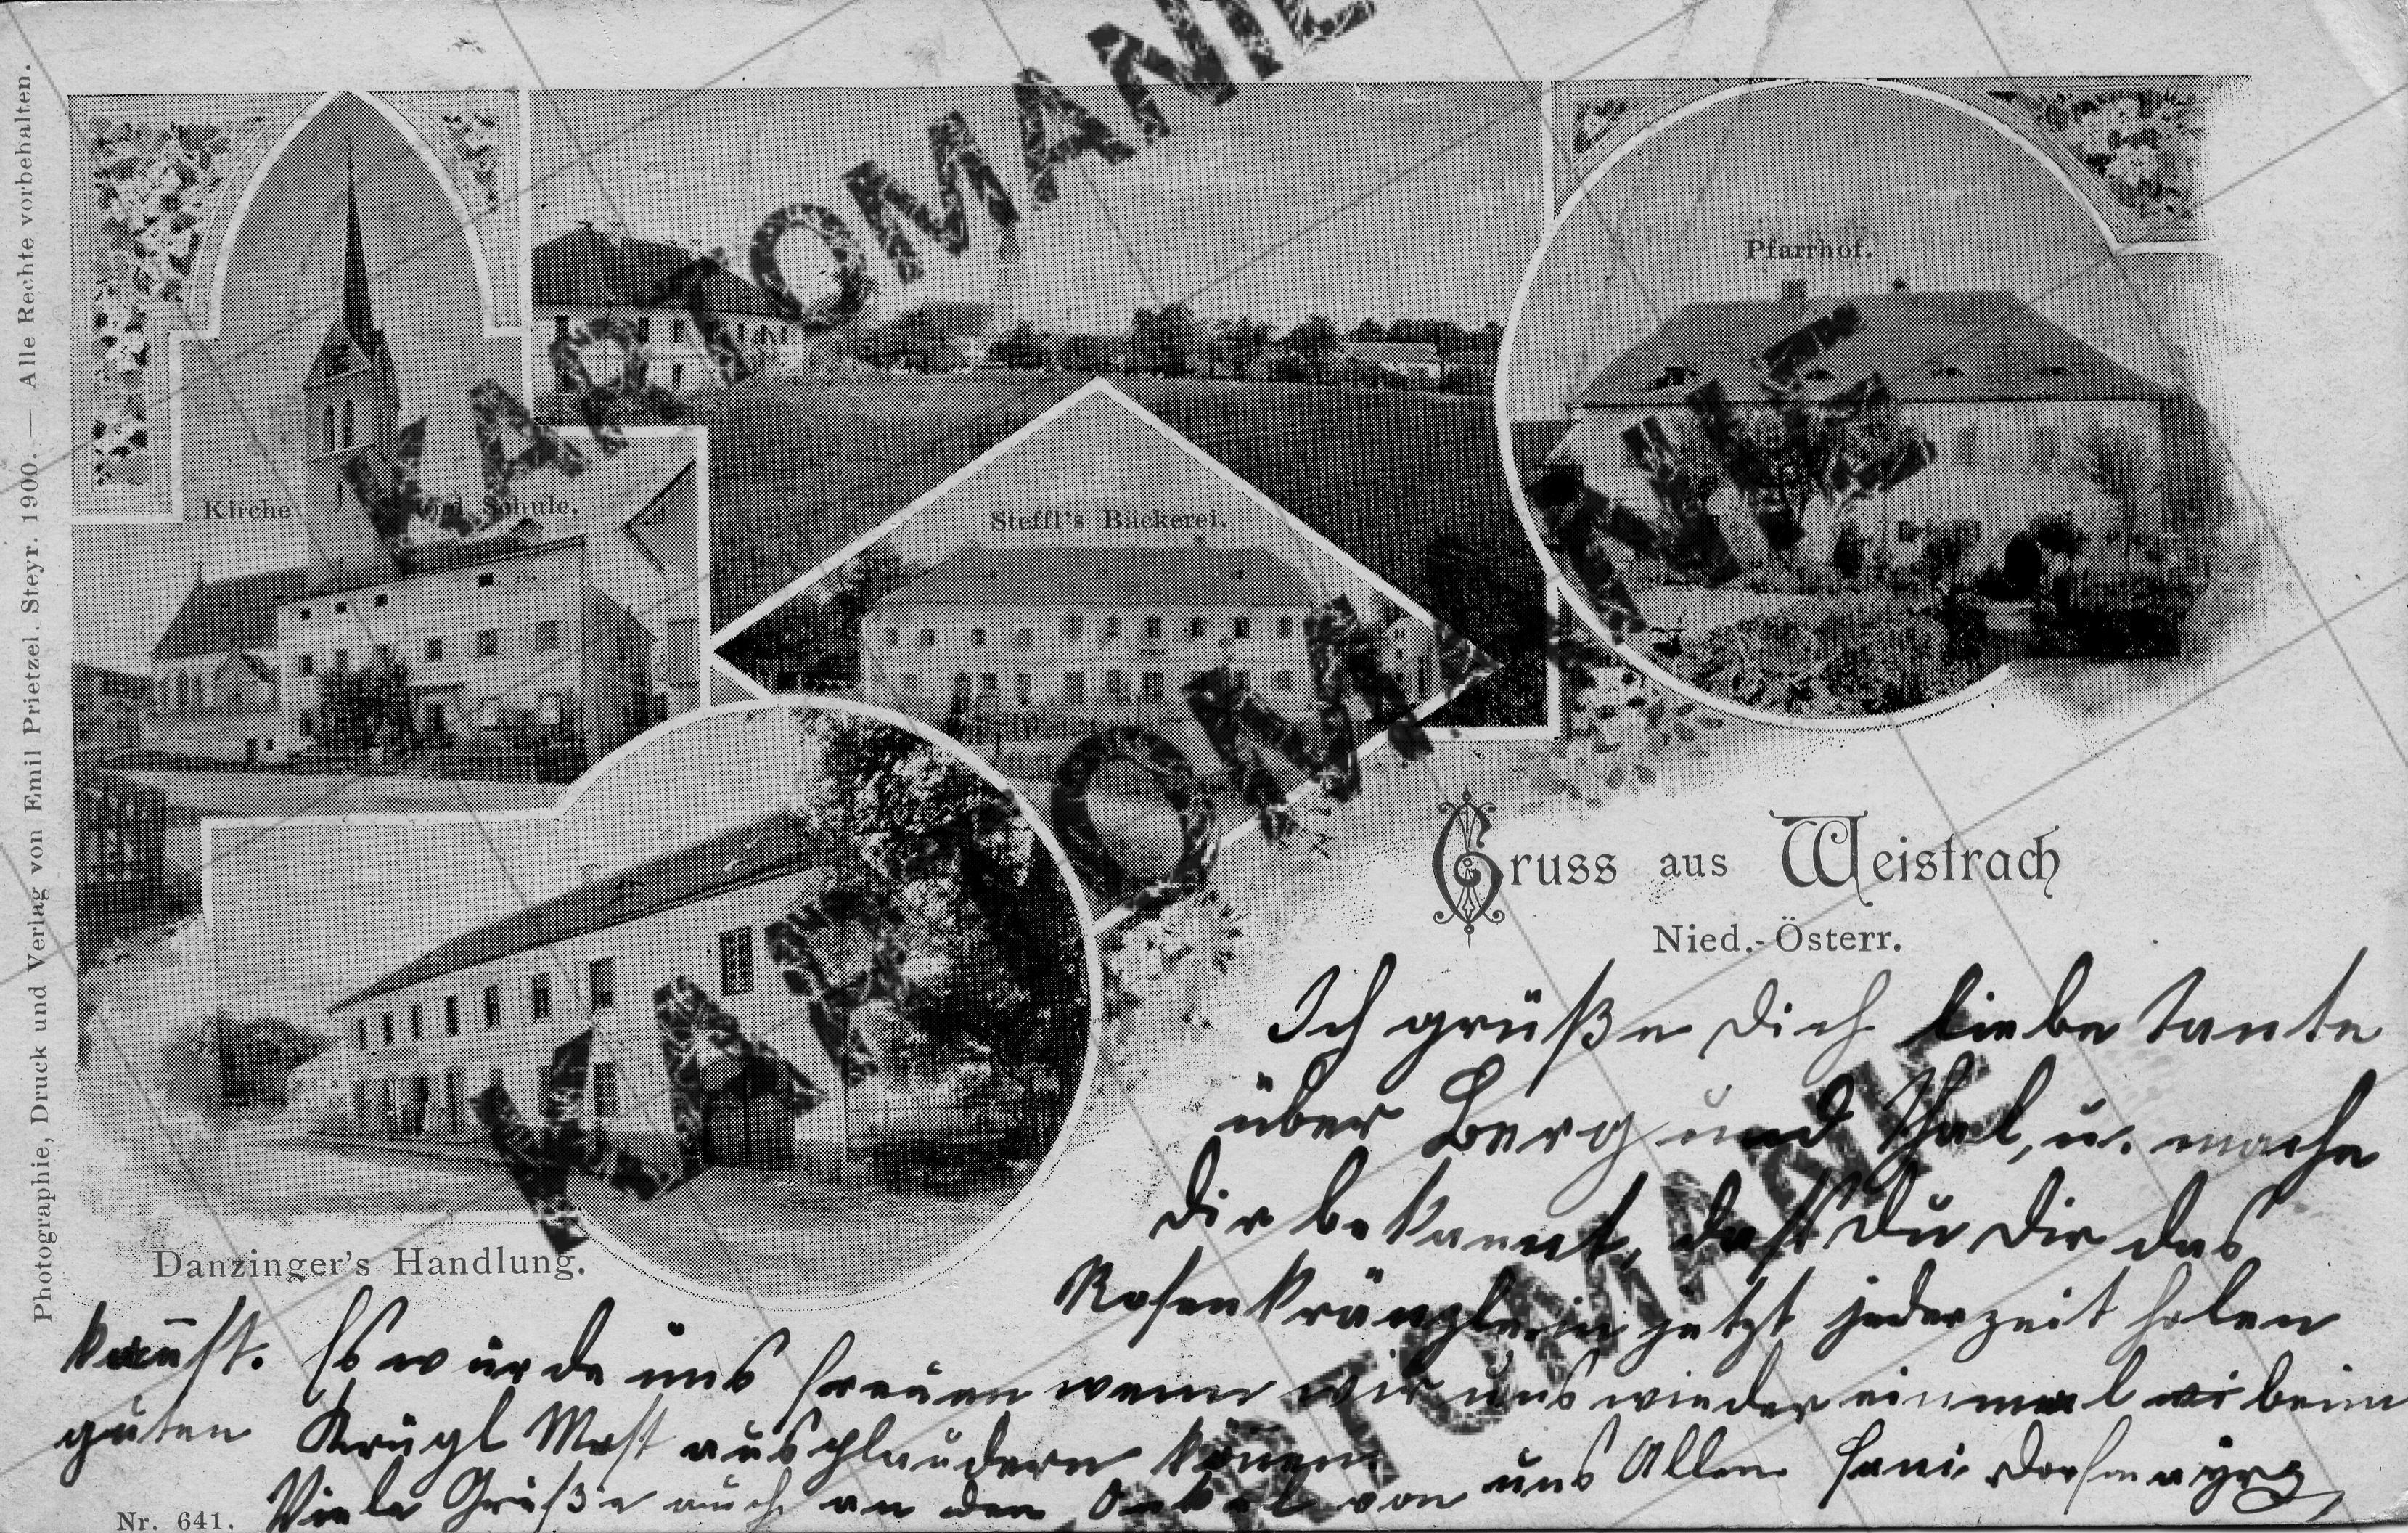 Photographie, Druck und Verlag von Emil Prietzel. Steyr. 1900. — Alle Rechte vorbehalten.
Kirche und Schule.
Steffl's Bäckerei.
Pfarrhof.
Danzinger's Handlung.
Gruss aus Weistrach
Nied.-Österr.
Ich grüße Dich liebe Tante
über Berg und Thal, u. mache
Dir bekannt, daß Du Dir das
Rosenkränzlein jetzt jederzeit holen
kannst. Es würde uns freuen wenn wir uns wieder einmal beim
guten Krügl Most ausplaudern könen.
Viele Grüße auch an den Onkel von uns Allen
Nr. 641.
KARTOMANIE
KARTOMANIE
KARTOMANIE